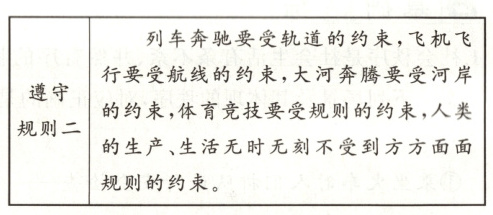 遵守
规则二
列车奔驰要受轨道的约束,飞机飞
行要受航线的约束,大河奔腾要受河岸
的约束,体育竞技要受规则的约束,人类
的生产、生活无时无刻不受到方方面面
规则的约束。